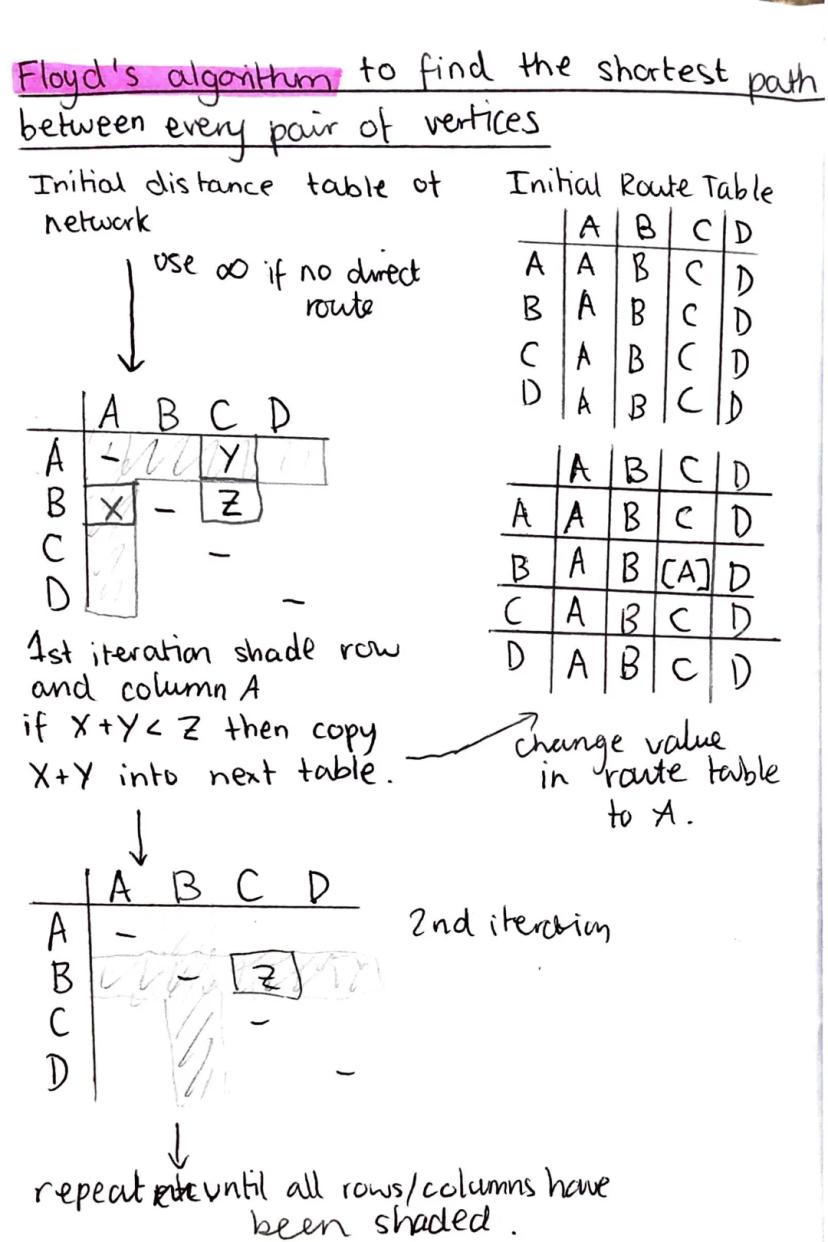 Floyd's algorithm to find the shortest path
between every pair of vertices
Initial distance table of
network
use ∞ if no direct
route
A B C D
A - Y
B X - Z
C -
D -
1st iteration shade row
and column A
if X+Y < Z then copy
X+Y into next table.
Initial Route Table
A B C D
A A B C D
B A B C D
C A B C D
D A B C D
A B C D
A A B C D
B A B [A] D
C A B C D
D A B C D
change value
in route table
to A.
A B C D
A -
B - Z
C -
D -
2nd iteration
repeat until all rows/columns have
been shaded.